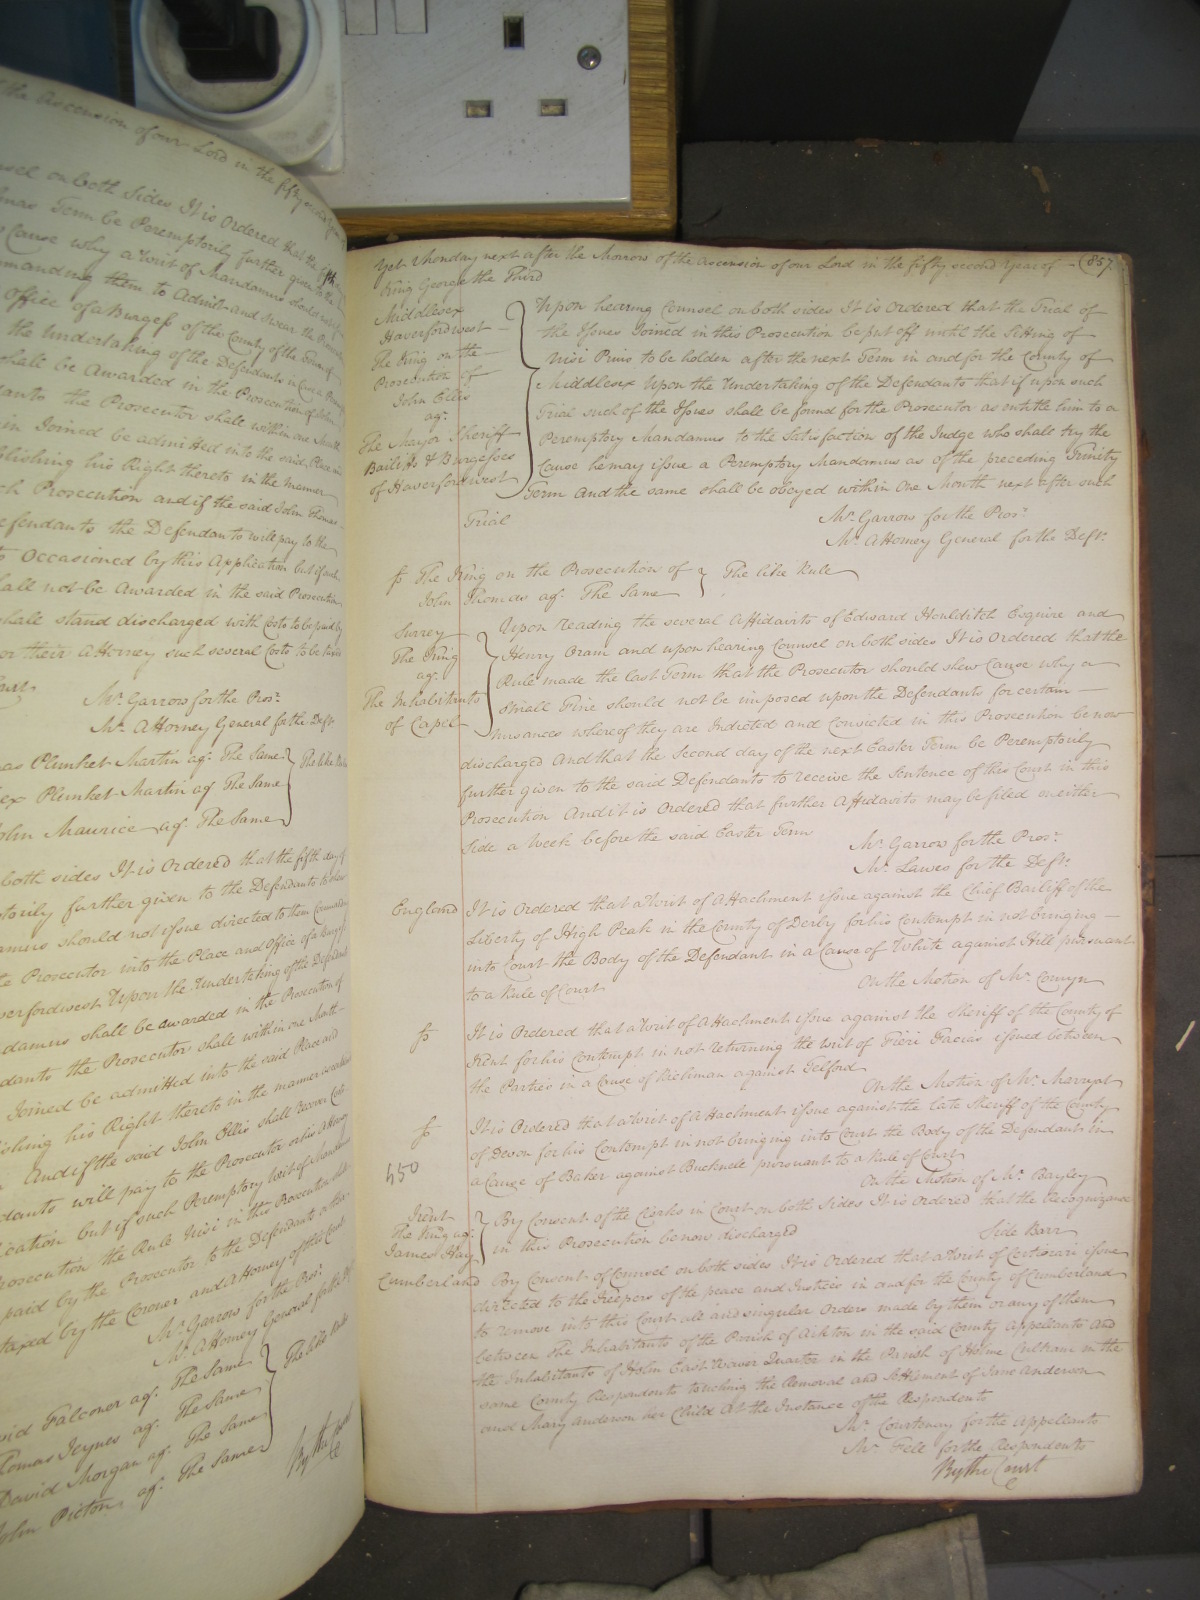 the Ascension of our Lord in the fifty second
Counsel on both Sides It is Ordered that the
Term be Peremptorily further given to the
Cause why a Writ of Mandamus should not
commanding them to Admit and swear the
office of a Burgess of the County of the Town of
the Undertaking of the Defendants in Case a
shall be Awarded in the Prosecution of John
the Prosecutor shall within one Month
Joined be admitted into the said Place
his Right thereto in the manner
Prosecution and if the said John Thomas
Defendants the Defendants will pay to the
Occasioned by this Application but if such
shall not be Awarded in the said Prosecution
shall stand discharged with Costs to be paid by
or their Attorney such several Costs to be taxed
Court
Mr. Garrow for the Pros.r
Mr. Attorney General for the Deft.
Plunket Martin ag.t The Same } The like Rule
Plunket Martin ag.t The Same
John Maurice ag.t The Same
both sides It is Ordered that the fifth day of
further given to the Defendants to shew
should not issue directed to them
the Prosecutor into the Place and Office of a Burgess
Haverfordwest Upon the Undertaking of the Defendants
shall be awarded in the Prosecution of
the Prosecutor shall within one Month
Joined be admitted into the said Place and
his Right thereto in the manner
And if the said John Ellis shall recover Costs
will pay to the Prosecutor or his Attorney
but if such Peremptory Writ of Mandamus
Prosecution the Rule Nisi in this Prosecution shall
paid by the Prosecutor to the Defendants or their
taxed by the Coroner and Attorney of this Court
Mr. Garrow for the Pros.r
Mr. Attorney General for the Deft.
David Falconer ag.t The Same } The like Rule
Thomas Jeynes ag.t The Same
David Morgan ag.t The Same
John Picton ag.t The Same
By the Court
Yet Monday next after the Morrow of the Ascension of our Lord in the fifty second Year of (857
King George the Third
Middlesex
Haverfordwest
The King on the
Prosecution of
John Ellis
ag.t
The Mayor Sheriff
Bailiffs & Burgesses
of Haverfordwest
Upon hearing Counsel on both sides It is Ordered that the Trial of
the Issues Joined in this Prosecution be put off until the Sitting of
Nisi Prius to be holden after the next Term in and for the County of
Middlesex Upon the Undertaking of the Defendants that if upon such
Trial such of the Issues shall be found for the Prosecutor as intitle him to a
Peremptory Mandamus to the Satisfaction of the Judge who shall try the
Cause he may issue a Peremptory Mandamus as of the preceding Trinity
Term and the same shall be obeyed within One Month next after such
Trial
Mr. Garrow for the Pros.r
Mr. Attorney General for the Deft.
The King on the Prosecution of } The like Rule
John Thomas ag.t The Same
Surrey
The King
ag.t
The Inhabitants
of Capel
Upon reading the several Affidavits of Edward Houlditch Esquire and
Henry Oram and upon hearing Counsel on both sides It is Ordered that the
Rule made the last Term that the Prosecutor should shew Cause why a
Small Fine should not be imposed upon the Defendants for certain
nuisances whereof they are Indicted and Convicted in this Prosecution be now
discharged And that the Second day of the next Easter Term be Peremptorily
further given to the said Defendants to receive the Sentence of this Court in this
Prosecution And it is Ordered that further Affidavits may be filed on either
Side a Week before the said Easter Term
Mr. Garrow for the Pros.r
Mr. Lawes for the Deft.
England It is Ordered that a Writ of Attachment issue against the Chief Bailiff of the
Liberty of High Peak in the County of Derby for his Contempt in not bringing
into Court the Body of the Defendant in a Cause of White against Hill pursuant
to a Rule of Court
On the Motion of Mr. Comyn
It is Ordered that a Writ of Attachment issue against the Sheriff of the County of
Kent for his Contempt in not returning the Writ of Fieri Facias issued between
the Parties in a Cause of Richman against Telford
On the Motion of Mr. Marryat
It is Ordered that a Writ of Attachment issue against the late Sheriff of the County
of Devon for his Contempt in not bringing into Court the Body of the Defendant in
a Cause of Baker against Bucknele pursuant to a Rule of Court
550
On the Motion of Mr. Bayley
Kent
The King ag.t
James Hay
By Consent of the Clerks in Court on both Sides It is Ordered that the Recognizance
in this Prosecution be now discharged
Side Barr
Cumberland By Consent of Counsel on both sides It is Ordered that a Writ of Certiorari issue
directed to the Keepers of the peace and Justices in and for the County of Cumberland
to remove into this Court all and singular Orders made by them or any of them
between the Inhabitants of the Parish of Aikton in the said County Appellants and
the Inhabitants of Holm East Waver Quarter in the Parish of Holme Cultram in the
same County Respondents touching the Removal and Settlement of Jane Anderson
and Mary Anderson her Child At the Instance of the Respondents
Mr. Courtenay for the Appellants
Mr. Fell for the Respondents
By the Court